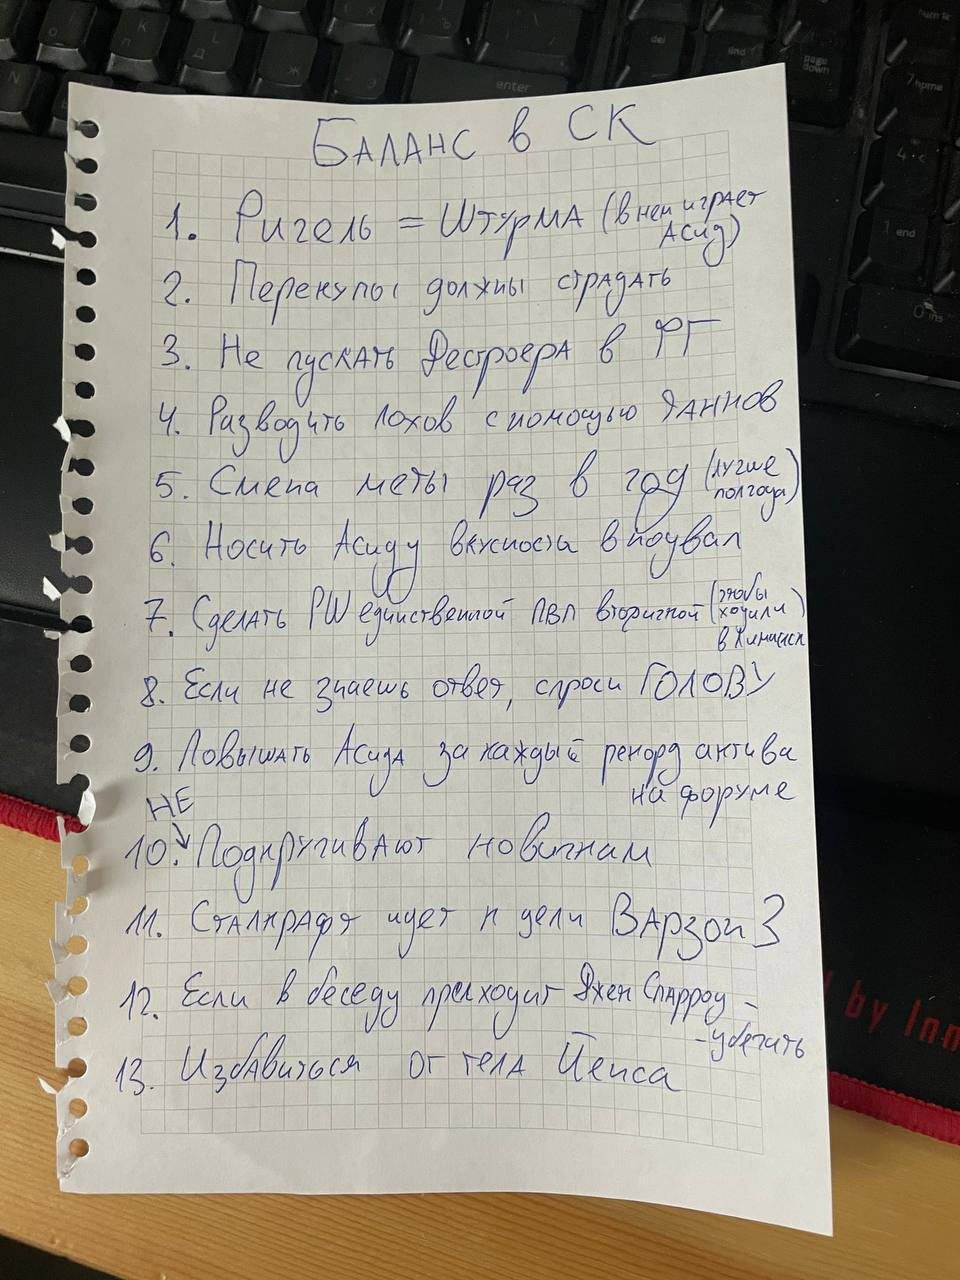 Баланс в СК
1. Ригель = Штурма (в нем играет
Асид)
2. Перекупы должны страдать
3. Не пускать Дестроера в ФГ
4. Разводить лохов с помощью Яаннов
5. Смена меты раз в год (лучше
полгода)
6. Носить Асиду вкусноста в подвал
7. Сделать PW единственной ПВП вторичкой (чтобы
ходили)
в Химаиск
8. Если не знаешь ответ, спроси ГОЛОВУ
9. Повышать Асида за каждый рекорд актива
на форуме
НЕ
10. Подкручивают новичкам
11. Сталкрафт идет к цели Варзон 3
12. Если в беседу приходит Джек Спарроу -
- убегать
13. Избавиться от тела Йепса
enter
del
end
page down
num lk
7 home
4
1 end
0 ins
d by Inn